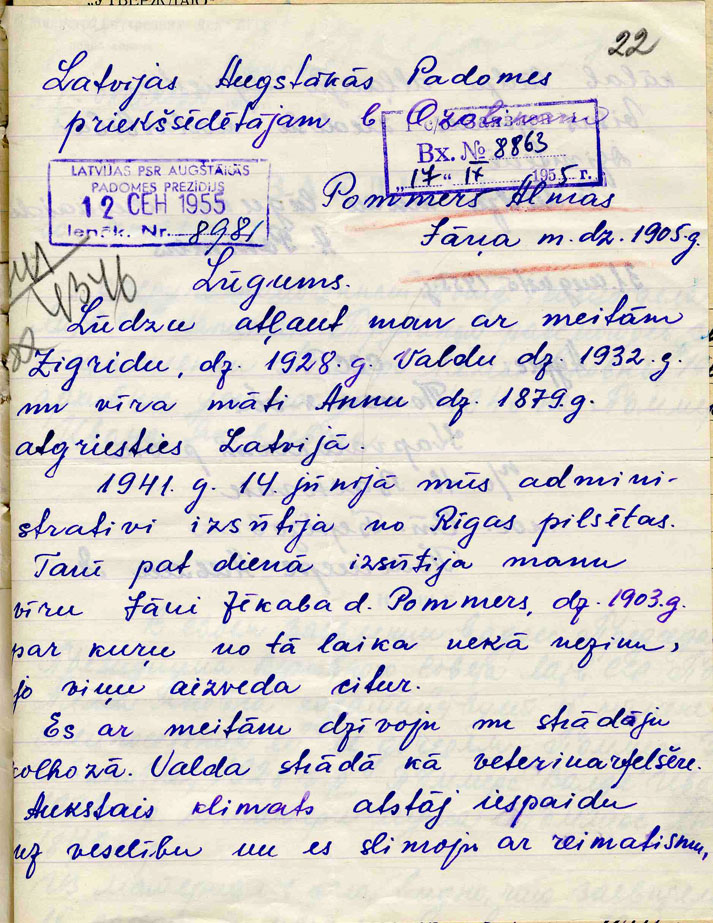 22
Latvijas Augstākās Padomes
priekšsēdētājam b. Ozoliņam
Вх. № 8863
„17“ IX 1955 г.
LATVIJAS PSR AUGSTĀKĀS
PADOMES PREZIDIJS
12 СЕН 1955
Ienāk. Nr. 8981
Pommers Almas
Jāņa m. dz. 1905.g.
4346
Lūgums.
Lūdzu atļaut man ar meitām
Zigridu, dz. 1928.g. Valdu dz. 1932.g.
un vīra māti Annu dz. 1879.g.
atgriesties Latvijā.
1941.g. 14. jūnijā mūs admini-
strativi izsūtija no Rīgas pilsētas.
Tanī pat dienā izsūtija manu
vīru Jāni Jēkaba d. Pommers, dz. 1903.g.
par kuŗu no tā laika nekā nezinu,
jo viņu aizveda citur.
Es ar meitām dzīvoju un strādāju
kolhozā. Valda strādā kā veterinarfelšere.
Aukstais klimats atstāj iespaidu
uz veselību un es slimoju ar reimatismu,